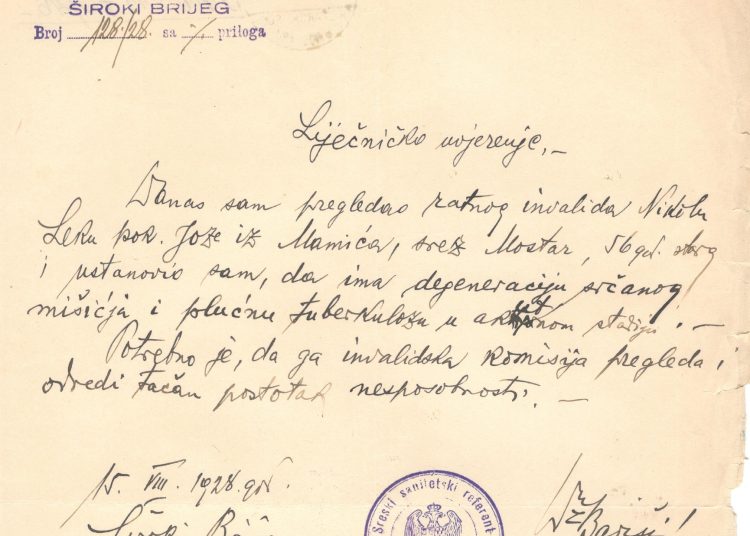 ŠIROKI BRIJEG
Broj 128/28. sa ·/. priloga
Liječničko uvjerenje,–
Danas sam pregledao ratnog invalida Nikolu
Leku pok. Joze iz Mamića, srez Mostar, 56 god. starog
i ustanovio sam, da ima degeneraciju srčanog
mišićja i plućnu tuberkulozu u stadiju.–
Potrebno je, da ga invalidska komisija pregleda i
odredi tačan postotak nesposobnosti.–
15. VIII. 1928. god.
Široki
Sreski sanitetski referent